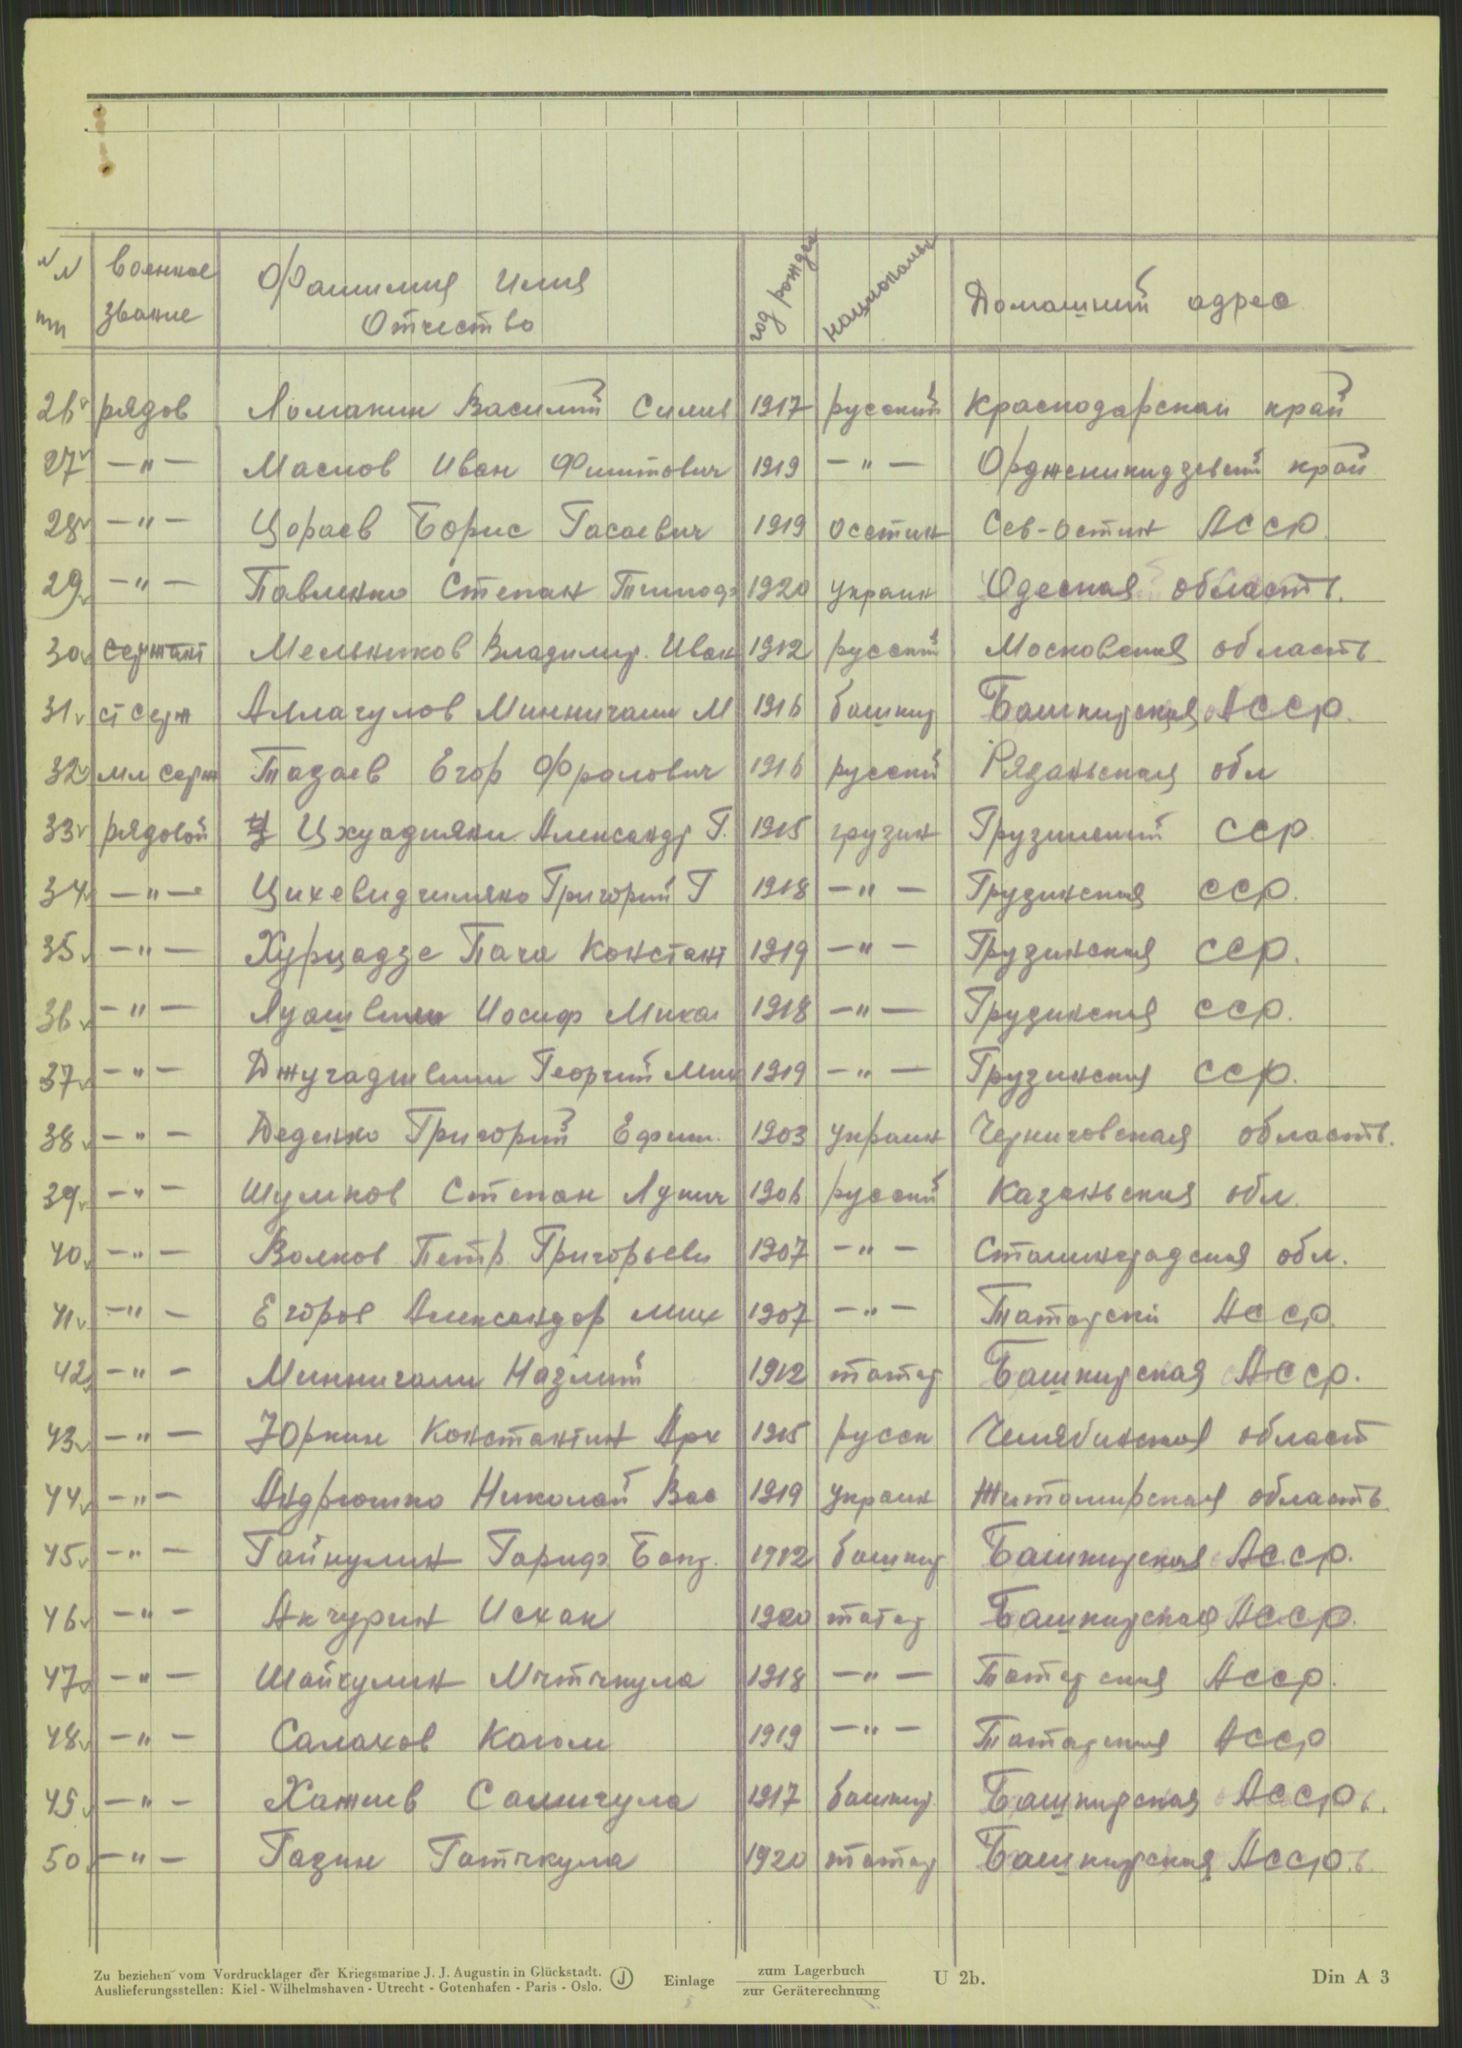 NN военное Фамилия Имя год рожден национальн Домашний адрес
пп звание Отчество
26 рядов Ломакин Василий Симив 1917 русский Краснодарскай край
27 —"— Маслов Иван 1919 —"— Орджсникидзевский край
28 —"— Цораев Борис Гасаевич 1919 осетин Сев-остин АССР
29 —"— Павленко Степан Тимофе 1920 украин Одеская область.
30 сержант Мельников Владимир. Иван 1912 русский Московская область
31 ст серж Аллагулов Миннигали М 1916 башкир Башкирская АССР.
32 мл серж Тазаев Егор Фролович 1916 русский Рязаньская обл
33 рядовой Александр Г. 1915 грузин Грузинский ССР.
34 —"— Григорий Г 1918 —"— Грузинская ССР.
35 —"— Хурцадзе Пача Констант 1919 —"— Грузинская ССР.
36 —"— Иосиф Михаи 1918 —"— Грузинская ССР.
37 —"— Георгий Мих 1919 —"— Грузинская ССР.
38 —"— Деденко Григорий Ефим. 1903 украин Черниговская область.
39 —"— Шумков Степан Лукич 1906 русский Казаньская обл.
40 —"— Волков Петр Григорьеви 1907 —"— Сталинградская обл.
41 —"— Егоров Александр Мих 1907 —"— Татарскй АССР.
42 —"— Миннигали Назмий 1912 татар Башкирская АССР.
43 —"— Юркин Константин Арх 1915 русск Челябинская област
44 —"— Андрюшко Николай Вас 1919 украин Житомирская область
45 —"— Гайкулин Гариф 1912 башкир Башкирская АССР.
46 —"— Акчурин Исхак 1920 татар Башкирская АССР.
47 —"— Шайгулин 1918 —"— Татарская АССР.
48 —"— Салахов Кагом 1919 —"— Татарская АССР
49 —"— Хажиев Самигула 1917 башкир Башкирская АССР.
50 —"— Газин 1920 татар Башкирская АССР.
Zu beziehen vom Vordrucklager der Kriegsmarine J. J. Augustin in Glückstadt. J Einlage zum Lagerbuch U 2b. Din A 3
Auslieferungsstellen: Kiel - Wilhelmshaven - Utrecht - Gotenhafen - Paris - Oslo. zur Geräterechnung